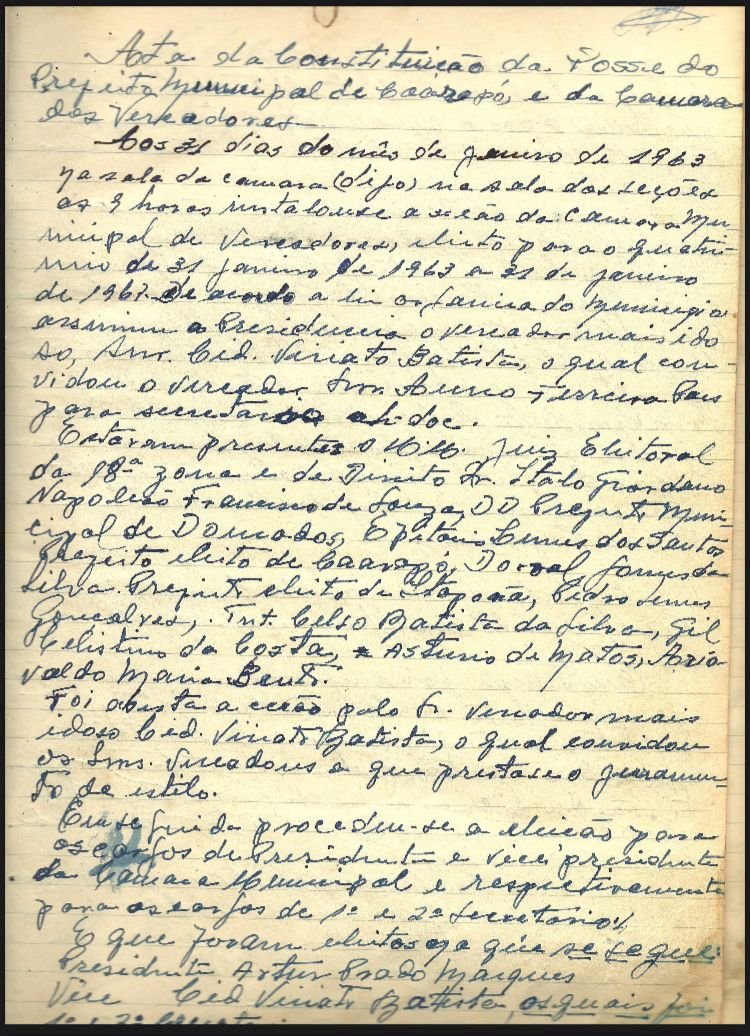 Ata da Constituição da Posse do
Prefeito Municipal de Caarapó, e da Camara
dos Vereadores
Aos 31 dias do mês de Janeiro de 1963
na sala da camara (digo) na sala das seções
as 9 horas instalou-se a seção da Camara Mu-
nicipal de Vereadores, eleito para o quatri-
nio de 31 janeiro de 1963 a 31 de janeiro
de 1967. De acordo a lei organica do Municipio
assumiu a Presidencia o vereador mais ido
so, Snr. Cid. Viriato Batista, o qual con-
vidou o vereador Snr. Ferreira Paes
para secretario ah-doc.
Estavam presentes o M.M. Juiz Eleitoral
da 18ª zona e de Direito Dr. Italo Giordano
Napoleão Francisco de Souza, DD Prefeito Muni-
cipal de Dourados, Epitácio Lemes dos Santos
Prefeito eleito de Caarapó, Dorval Gomes da
Silva Prefeito eleito de Itaporã, Pedro Lemes
Gonçalves, Tnt. Celso Batista da Silva, Gil
Celistino da Costa, Asturio de Matos, Ario
valdo Maria Bent.
Foi aberta a ceção pelo Sr. Vereador mais
idoso Cid. Viriato Batista, o qual convidou
os Snrs. Vereadores a que prestase o juramen-
to de estilo.
Em se guida procedeu-se a eleicão para
os cargos de Presidente e Vice presidente
da Camara Municipal e respectivamente
para os cargos de 1º e 2º Secretario
E que foram eleitos os que se segue:
Presidente Artur Prado Marques
Vice Cid Viriato Batista, os quais foi
1º e 2º